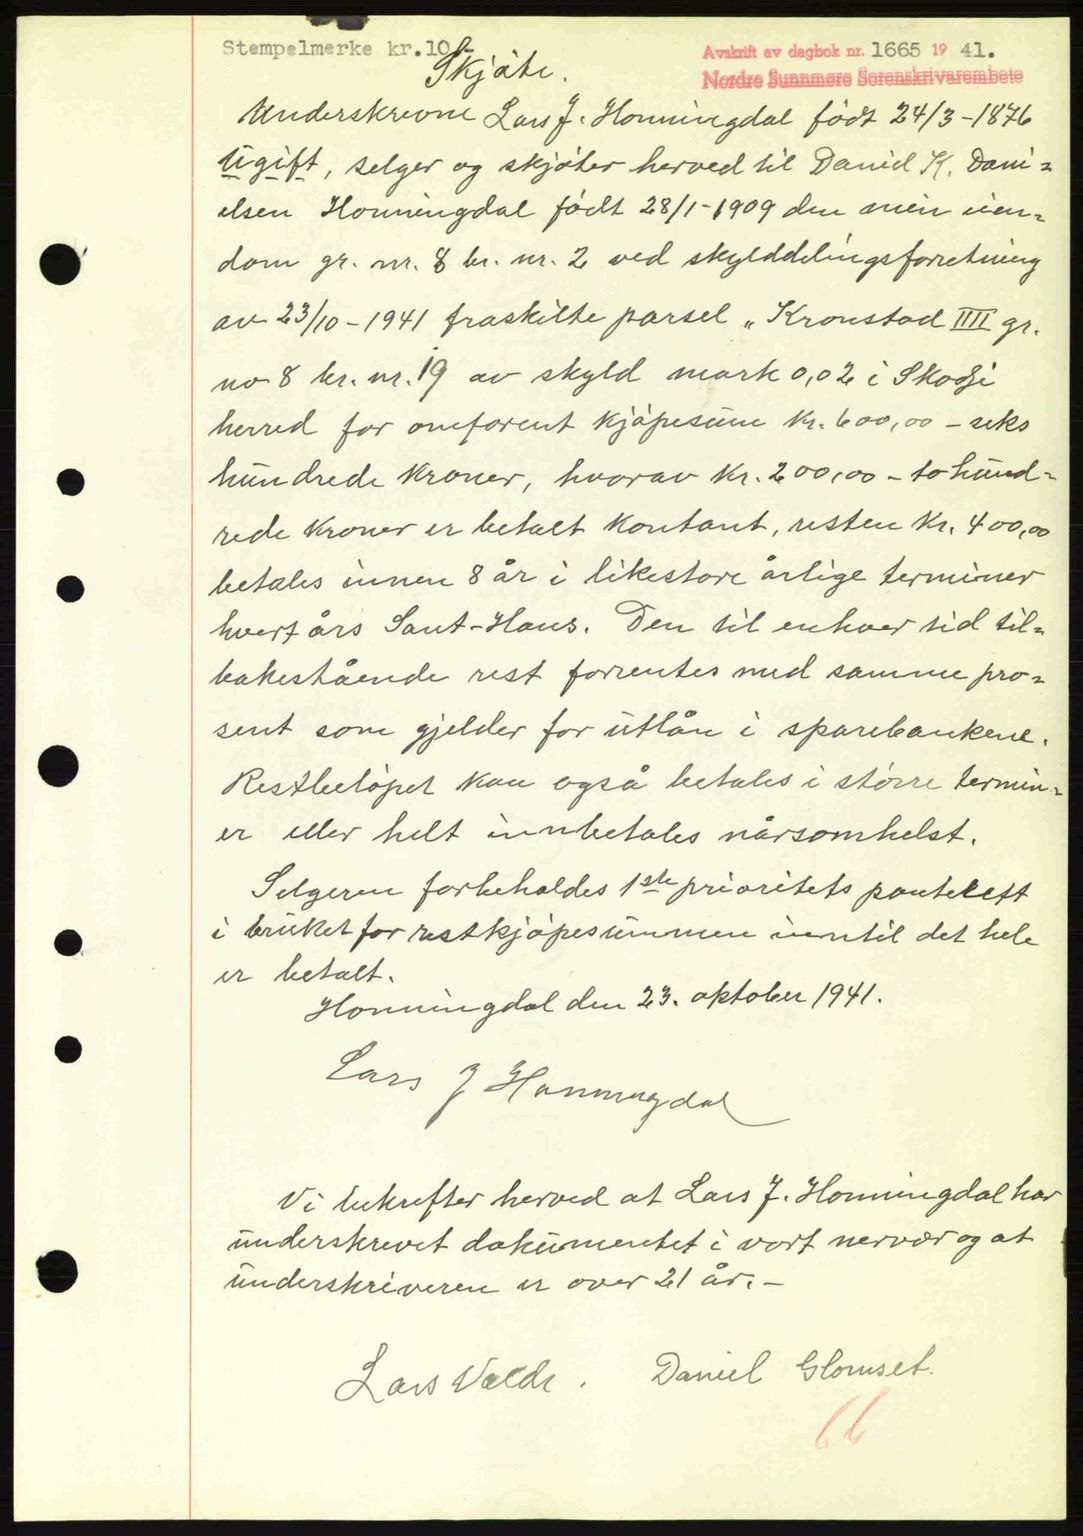 Stempelmerke kr.10,-
Avskrift av dagbok nr. 1665 19 41.
Nordre Sunnmøre Sorenskrivarembete
Skjøte.
Underskrevne Lars J. Honningdal født 24/3-1876
Ugift, selger og skjøter herved til Daniel K. Dani=
elsen Honningdal født 28/1-1909 den min eien=
dom gr. nr. 8 br. nr. 2 ved skylddelingsforretning
av 23/10-1941 fraskilte parsel „Kronstad IIII gr.
no 8 br. nr. 19 av skyld mark 0,02 i Skodje
herred for omforent kjøpesum kr. 600,00 - seks
hundrede kroner, hvorav kr. 200,00 - to hund=
rede kroner er betalt kontant, resten kr. 400,00
betales innen 8 år i likestore årlige terminer
hvert års Sant-Hans. Den til enhver tid til=
bakestående rest forrentes med samme pro=
sent som gjelder for utlån i sparebankene.
Restbeløpet kan også betales i større termin=
er eller helt innbetales nårsomhelst.
Selgeren forbeholdes 1ste prioritets panterett
i bruket for restkjøpesummen inntil det hele
er betalt.
Honningdal den 23. oktober 1941.
Lars J Honningdal
Vi bekrefter herved at Lars J. Honningdal har
underskrevet dokumentet i vort nervær og at
underskriveren er over 21 år. -
Lars Valde. Daniel Glomset.
66